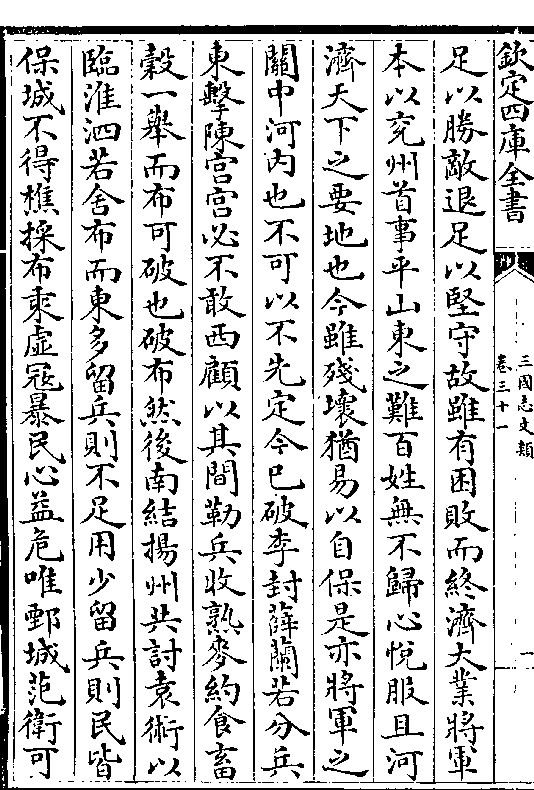 欽定四庫全書
三國志文類
卷三十一
足以勝敵退足以堅守故雖有困敗而終濟大業將軍
本以兖州首事平山東之難百姓無不歸心悅服且河
濟天下之要地也今雖殘壞猶易以自保是亦將軍之
關中河内也不可以不先定今已破李封薛蘭若分兵
東擊陳宫宫必不敢西顧以其間勒兵收熟麥約食畜
穀一舉而布可破也破布然後南結揚州共討袁術以
臨淮泗若舍布而東多留兵則不足用少留兵則民皆
保城不得樵採布乘虚寇暴民心益危唯鄄城范衛可